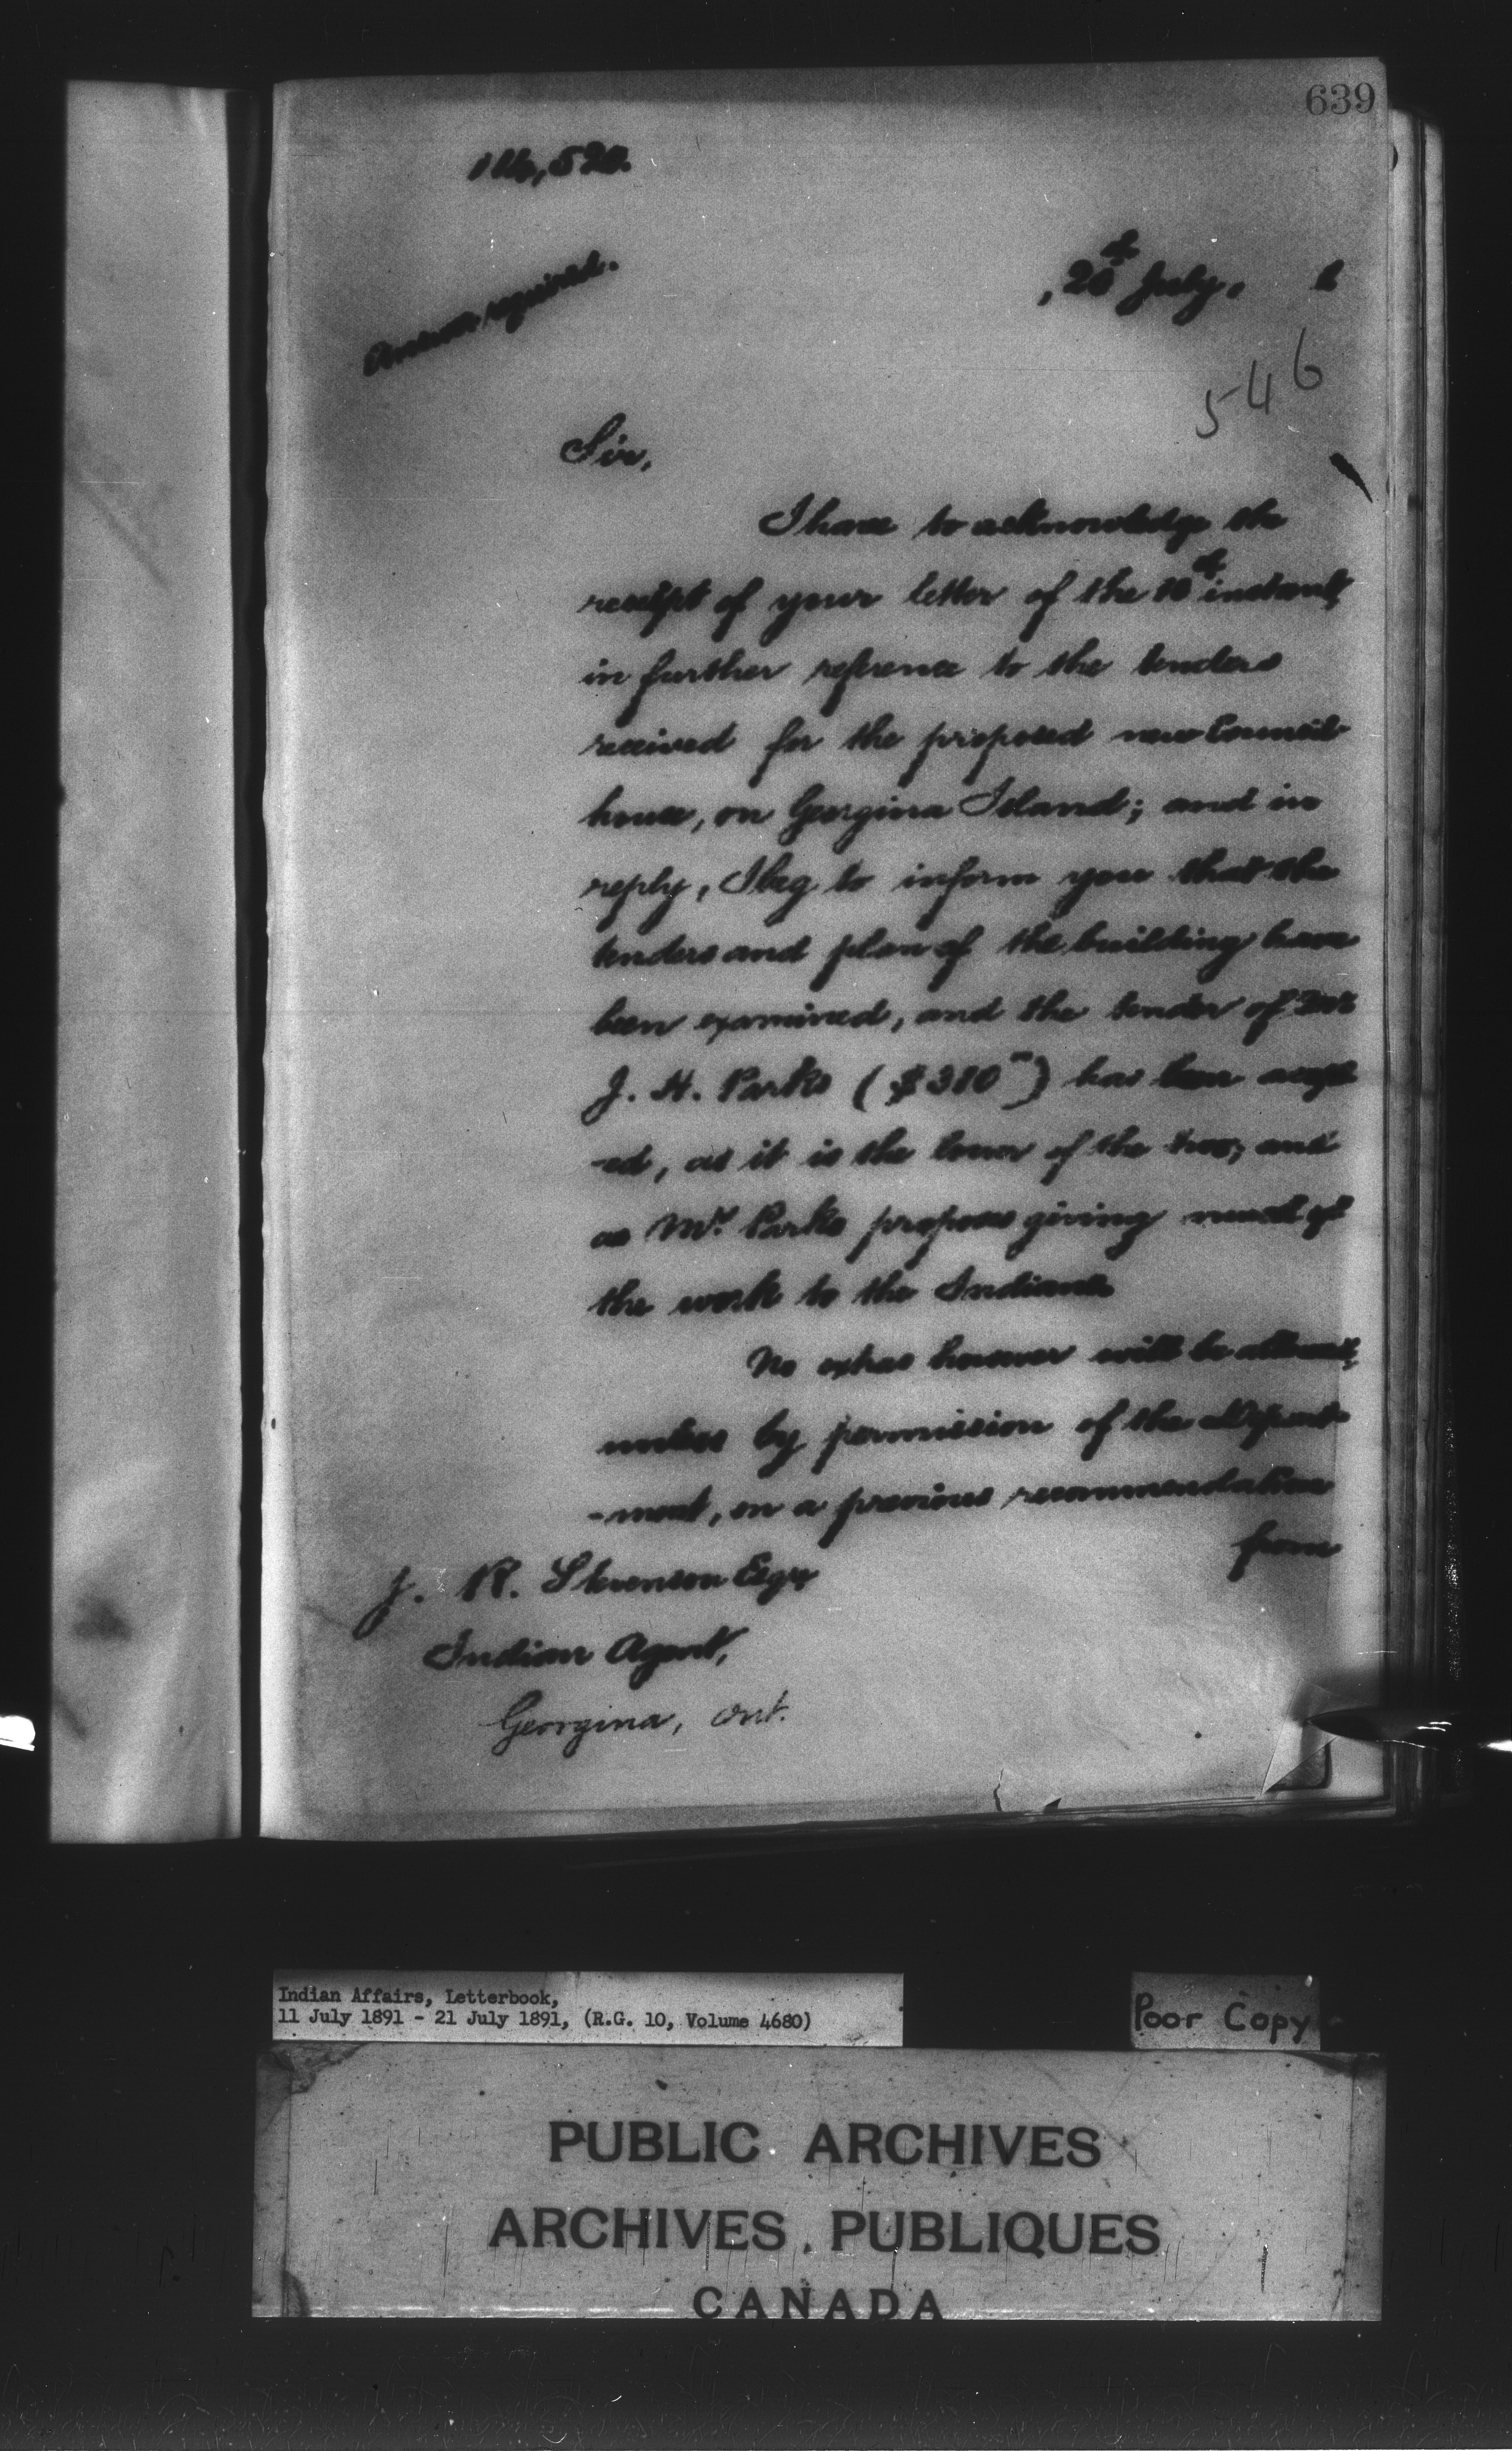 639
116,520.
Answer required.
, 20th July, 1
546
Sir,
I have to acknowledge the
receipt of your letter of the 10th instant,
in further reference to the tenders
received for the proposed new Council
house, on Georgina Island; and in
reply, I beg to inform you that the
tenders and plan of the building have
been examined, and the tender of
J. H. Parks ($380 ) has been accept
-ed, as it is the lower of the two; and
as Mr. Parks proposes giving much of
the work to the Indians
No extras however will be allowed,
unless by permission of the Depart
-ment, on a previous recommendation
from
J. R. Stevenson Esqr
Indian Agent,
Georgina, Ont.
Indian Affairs, Letterbook,
11 July 1891 - 21 July 1891, (R.G. 10, Volume 4680)
Poor Copy
PUBLIC ARCHIVES
ARCHIVES PUBLIQUES
CANADA